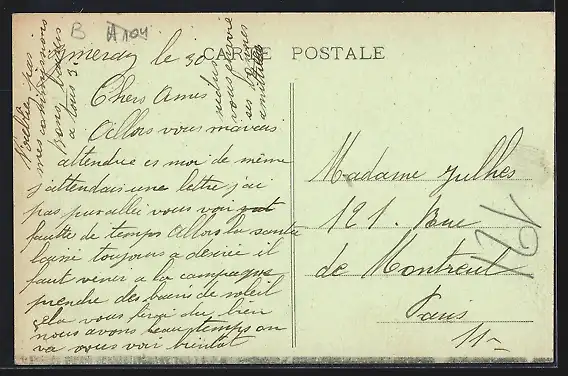 B A 104
CARTE POSTALE
mercy le 30
Chers Amis
Allors vous mavais
attendue es moi de même
j'attendais une lettre j'ai
pas pu allée vous voir
fautte de temps Allors la santée
laisse toujours a désirée il
faut venir a la campagne
prendre des bains de soleil
cela vous ferai du bien
nous avons beau temps on
va vous voir bientot
pas
mes commissions
bons baisers
a tous 3
vous envoie
ses bonnes
amitiées
Madame Julhes
121. Rue
de Montreuil
Paris
11-
121